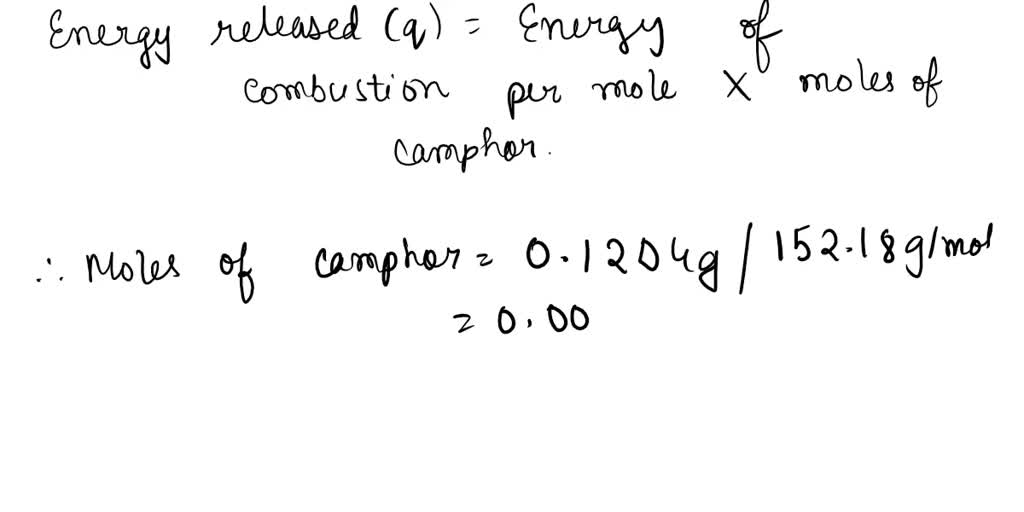 Energy released (q) = Energy of
combustion per mole X moles of
camphor.
∴ Moles of camphor = 0.1204g / 152.18g/mol
= 0.00